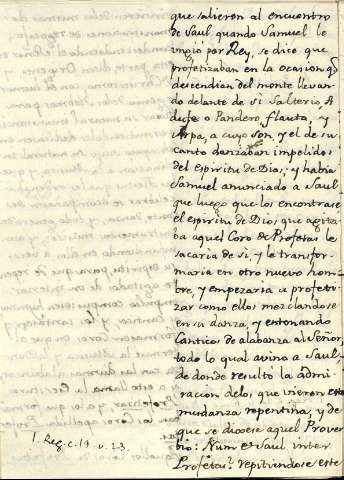 que salieron al encuentro
de Saul quando Samuel le
ungio por Rey, se dice que
profetizaban en la ocasion q̃
descendian del monte lleván
do delante de sì Salterio, A
dufe o Pandero, flauta, y
Arpa, a cuyo son, y el de su
canto danzaban impelidos
del espiritu de Dios; y habia
Samuel anunciado a Saul
que luego que los encontrase
el espiritu de Dios, que agita
ba aquel Coro de Profetas le
sacaria de si, y le transfor-
maria en otro nuevo hom-
bre, y empezaria a profeti-
zar como ellos mezclandose
en su danza, y entonando
Canticos de alabanza al Señor,
todo lo qual avino a Saul-
de donde resultò la admi-
racion de los que vieron esta
mudanza repentina, y de
que se dixese aquel Prover
bio: Num et Saul inter
Profetas? repitiendose este
1. Reg. c. 19. v. 23